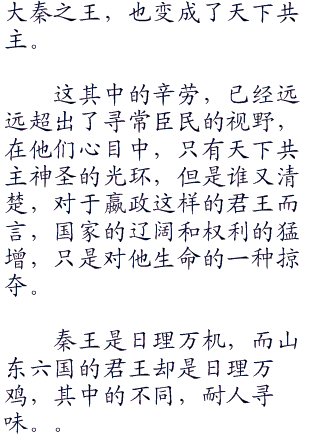 大秦之王，也变成了天下共
主。
这其中的辛劳，已经远
远超出了寻常臣民的视野，
在他们心目中，只有天下共
主神圣的光环，但是谁又清
楚，对于嬴政这样的君王而
言，国家的辽阔和权利的猛
增，只是对他生命的一种掠
夺。
秦王是日理万机，而山
东六国的君王却是日理万
鸡，其中的不同，耐人寻
味。。